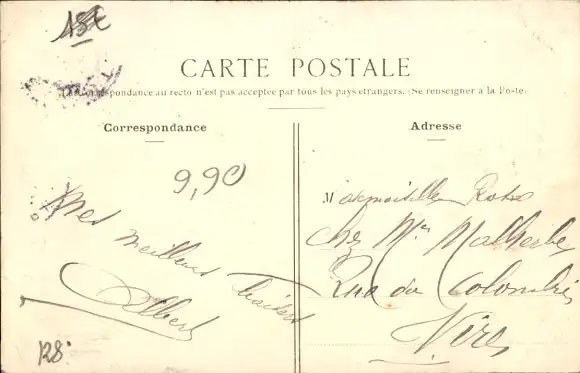 15€
CARTE POSTALE
La Correspondance au recto n'est pas acceptée par tous les pays étrangers. (Se renseigner à la Poste.
Correspondance
Adresse
9,90
Mes meilleurs baisers
Albert
Mademoiselle Rosa
chez Mme Malherbe
Rue du Colombier
Vire
128